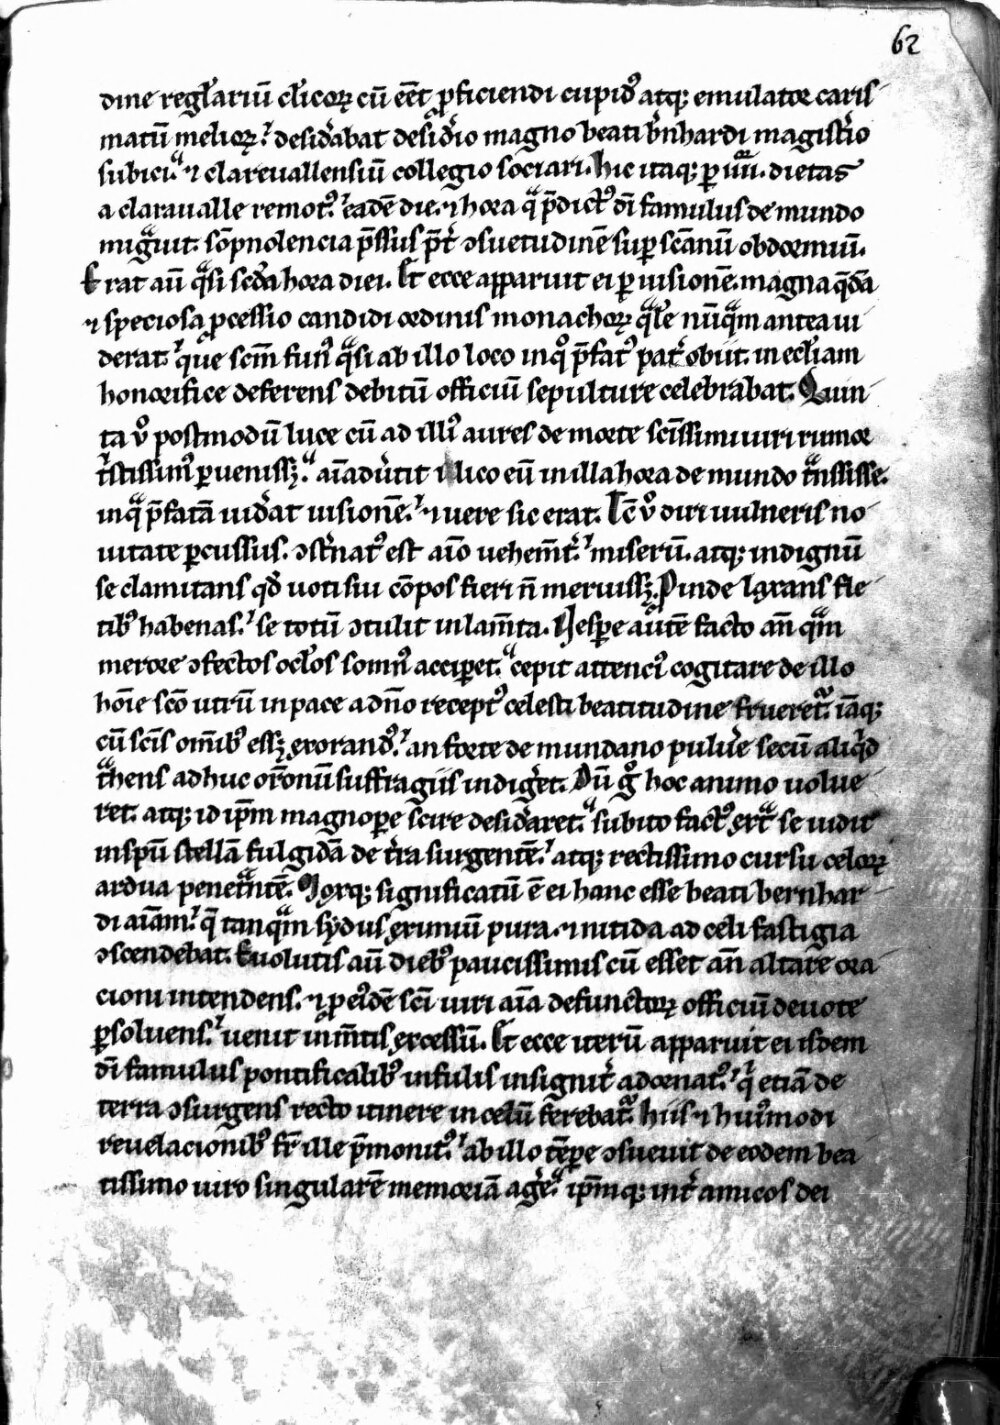 62
dine regl̃ariũ cl̃icoꝝ cũ eẽt ꝓficiendi cupidꝰ atqꝫ emulator caris
matũ melioꝝ. desid̾abat desid̾io magno beati b̾nhardi magist̾io
subici. ⁊ clareuallensiũ collegio sociari. hic itaqꝫ ꝑ iiii. dietas
a claraualle remotꝰ. eadẽ die. ⁊ hora qᵃ p̃dictꝰ dı̃ famulus de mundo
migᵃuit. sõpnolencia p̃ssus p̃t̾ ↄsuetudinẽ suꝑ scãnũ obdormiuit.
Erat aũt qᵃsi sc̃da hora diei. Et ecce apparuit ei ꝑ uisionẽ. magna q̃dã
⁊ speciosa ꝓcessio candidi ordinis monachoꝝ qᵃle nũqᵃm antea ui
derat. que scı̃m funꝰ qᵃsi ab illo loco in qͦ p̃fatꝰ pat̾ obiit. in eccl̃iam
honorifice deferens debitũ officiũ sepulture celebrabat. Quin
ta v̾ͦ postmodũ luce cũ ad illiꝰ aures de morte scı̃ssimi uiri rumor
t̾stissimꝰ ꝑuenissꝫ. aı̃aduertit illico eũ in illa hora de mundo tᵃnsisse.
in qᵃ p̃fatã uid̾at uisionẽ. ⁊ uere sic erat. Hic v̾ͦ diri uulneris no
uitate ꝑcussus. ↄst̾natꝰ est aı̃o uehem̃t̾. miserũ. atqꝫ indignũ
se clamitans qd̾ uoti sui cõpos fieri nõ meruissꝫ. Proinde laxans fle
tibꝰ habenas. se totũ ↄtulit in lam̃ta. Vesꝑe autẽ facto añ qᵃm
merore ↄfectos ocl̃os somnꝰ acciꝑet. cepit attenciꝰ cogitare de illo
hoı̃e sc̃o utrũ in pace a dño receptꝰ celesti beatitudine frueret̃. iãqꝫ
cũ scı̃s om̃ibꝰ essꝫ exorandꝰ. an forte de mundano puluere secũ aliqͥd
tᵃhens adhuc or̃onũ suffragiis indig̾et. Dũ gͦ hoc animo uolue
ret. atqꝫ id ip̃m magnoꝑe scire desid̾aret. subito factꝰ ext̾ᵃ se uidit
in sp̃u stellã fulgidã de t̾ra surgentẽ. atqꝫ rectissimo cursu celoꝝ
ardua penetᵃntẽ. Moxqꝫ significatũ ẽ ei hanc esse beati bernhar
di aı̃am. q̃ tanqᵃm sydus eximiũ pura. ⁊ nitida ad celi fastigia
ↄscendebat. Euolutis aũt diebꝰ paucissimis cũ esset añ altare ora
cioni intendens. ⁊ ꝓ eiꝰdẽ scı̃ uiri aı̃a defunctoꝝ officiũ deuote
ꝑsoluens. uenit in m̃tis excessũ. Et ecce iterũ apparuit ei isdem
dı̃ famulus pontificalibꝰ infulis insignit̾ adornatꝰ. qͥ etiã de
terra ↄsurgens recto itinere in celũ ferebat̃. Hiis ⁊ huiꝰmodi
reuelacionibꝰ fr̃ ille p̃monitꝰ. ab illo tẽꝑe ↄsueuit de eodem bea
tissimo uiro singularẽ memoriã ag̾e. ip̃mqꝫ int̾ amicos dei